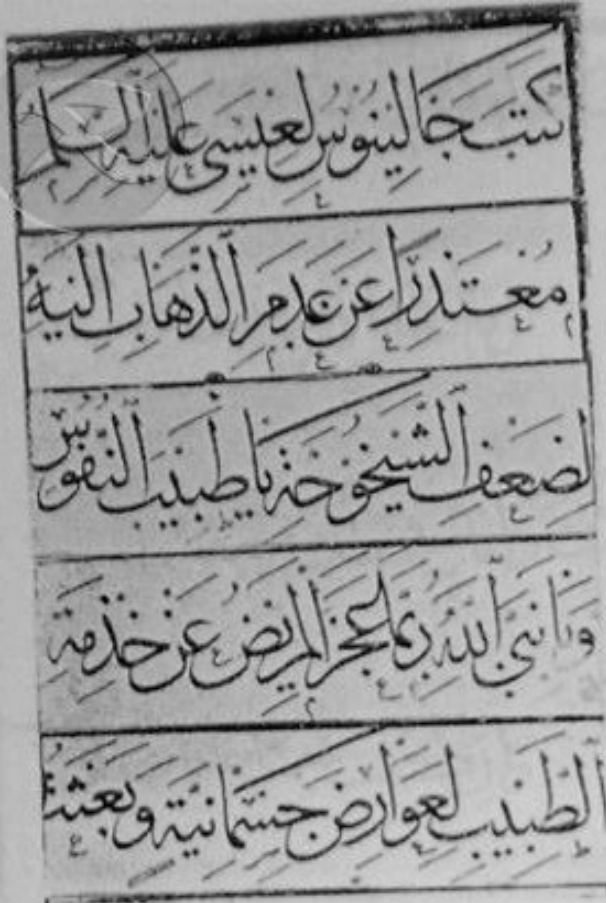 كتب جالينوس لعيسى عليه السلم
معتذرا عن عدم الذهاب اليه
لضعف الشيخوخة يا طبيب النفوس
ويا نبي الله ربما عجز المريض عن خدمة
الطبيب لعوارض جسمانية وبعثت